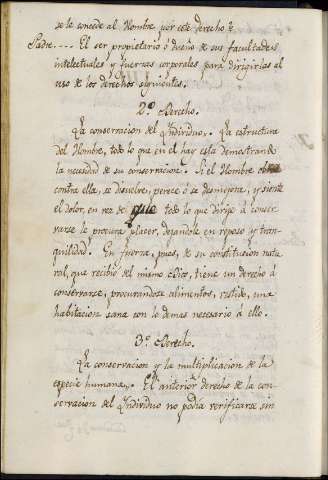 se le concede al Hombre por este derecho?
Padre.... El ser propietario ó dueño de sus facultades
intelectuales y fuerzas corporales para dirigirlas al
uso de los derechos siguientes.
2º Derecho.
La conservacion del Individuo,. La estructura
del Hombre, todo lo que en él hay esta demostrando
la necesidad de su conservacion. Si el Hombre obra
contra ella, se disuelve, perece ó se desmejora, y siente
el dolor, en vez de que todo lo que dirije á conser-
varse le procura placer, dejandole en reposo y tran-
quilidad. En fuerza, pues, de su constitucion natu-
ral, que recibió del mismo Dios, tiene un derecho á
conservarse, procurandose alimentos, vestido, una
habitacion sana con lo demas necesario á ello.
3º Derecho.
La conservacion y la multiplicacion de la
especie humana,. El anterior derecho de la con-
servacion del Individuo no podia verificarse sin